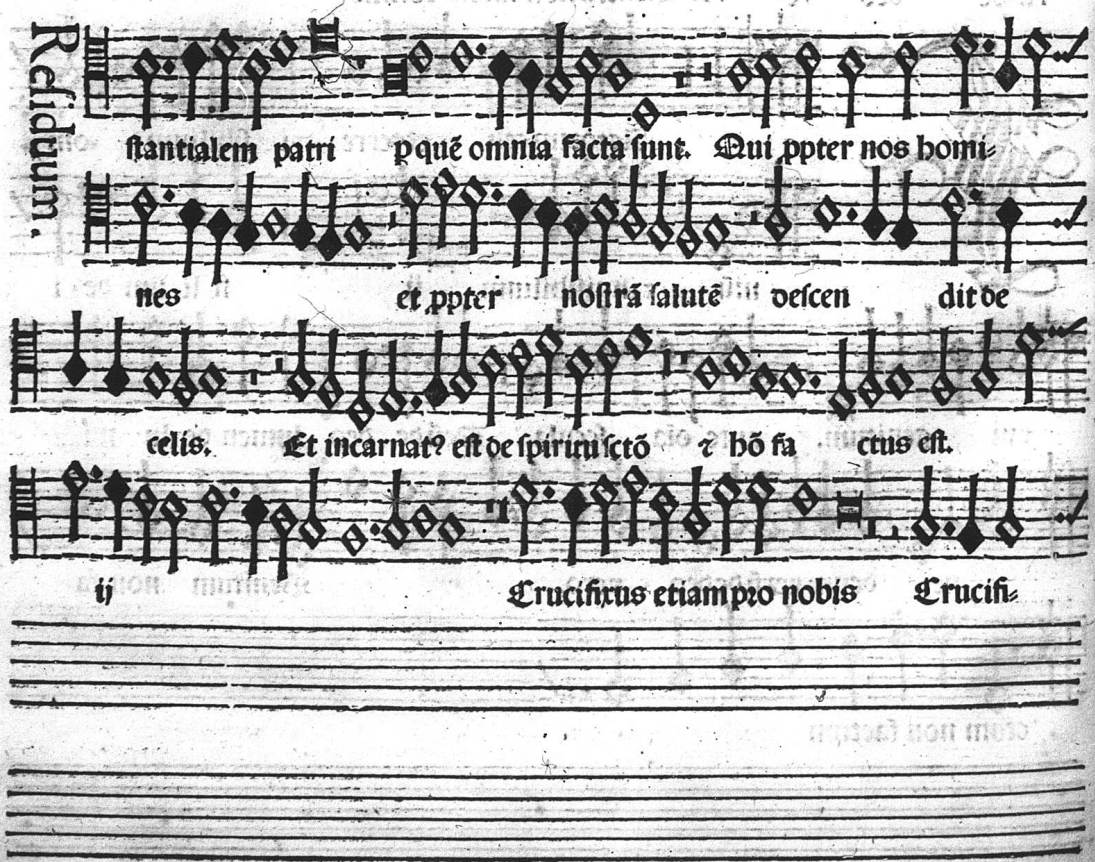 Residuum.
stantialem patri p quē omnia facta sunt. Qui ꝓpter nos homi-
nes et ꝓpter nostrā salutē descen dit de
celis. Et incarnat⁹ est de spiritu sctō ⁊ hō fa ctus est.
ij Crucifixus etiam pro nobis Crucifi-